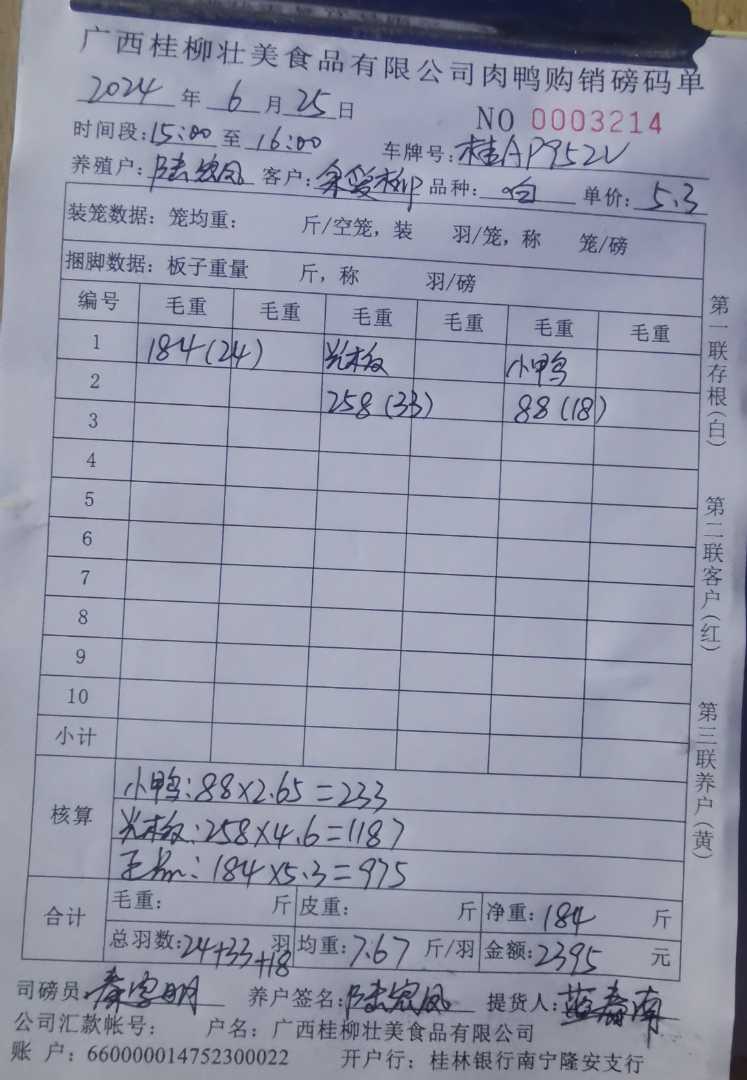 广西桂柳壮美食品有限公司肉鸭购销磅码单
2024 年 6 月 25 日 NO 0003214
时间段: 15:00 至 16:00 车牌号: 桂AP952V
养殖户: 客户: 品种: 白 单价: 5.3
装笼数据: 笼均重: 斤/空笼, 装 羽/笼, 称 笼/磅
捆脚数据: 板子重量 斤, 称 羽/磅
编号 毛重 毛重 毛重 毛重 毛重 毛重
1 184(24) 光板 小鸭
2 258(33) 88(18)
3
4
5
6
7
8
9
10
小计
核算
小鸭: 88×2.65=233
光板: 258×4.6=1187
184×5.3=975
合计 毛重: 斤 皮重: 斤 净重: 184 斤
总羽数: 24+33+18 羽 均重: 7.67 斤/羽 金额: 2395 元
司磅员: 养户签名: 提货人:
公司汇款帐号: 户名: 广西桂柳壮美食品有限公司
账 户: 660000014752300022 开户行: 桂林银行南宁隆安支行
第一联存根(白) 第二联客户(红) 第三联养户(黄)